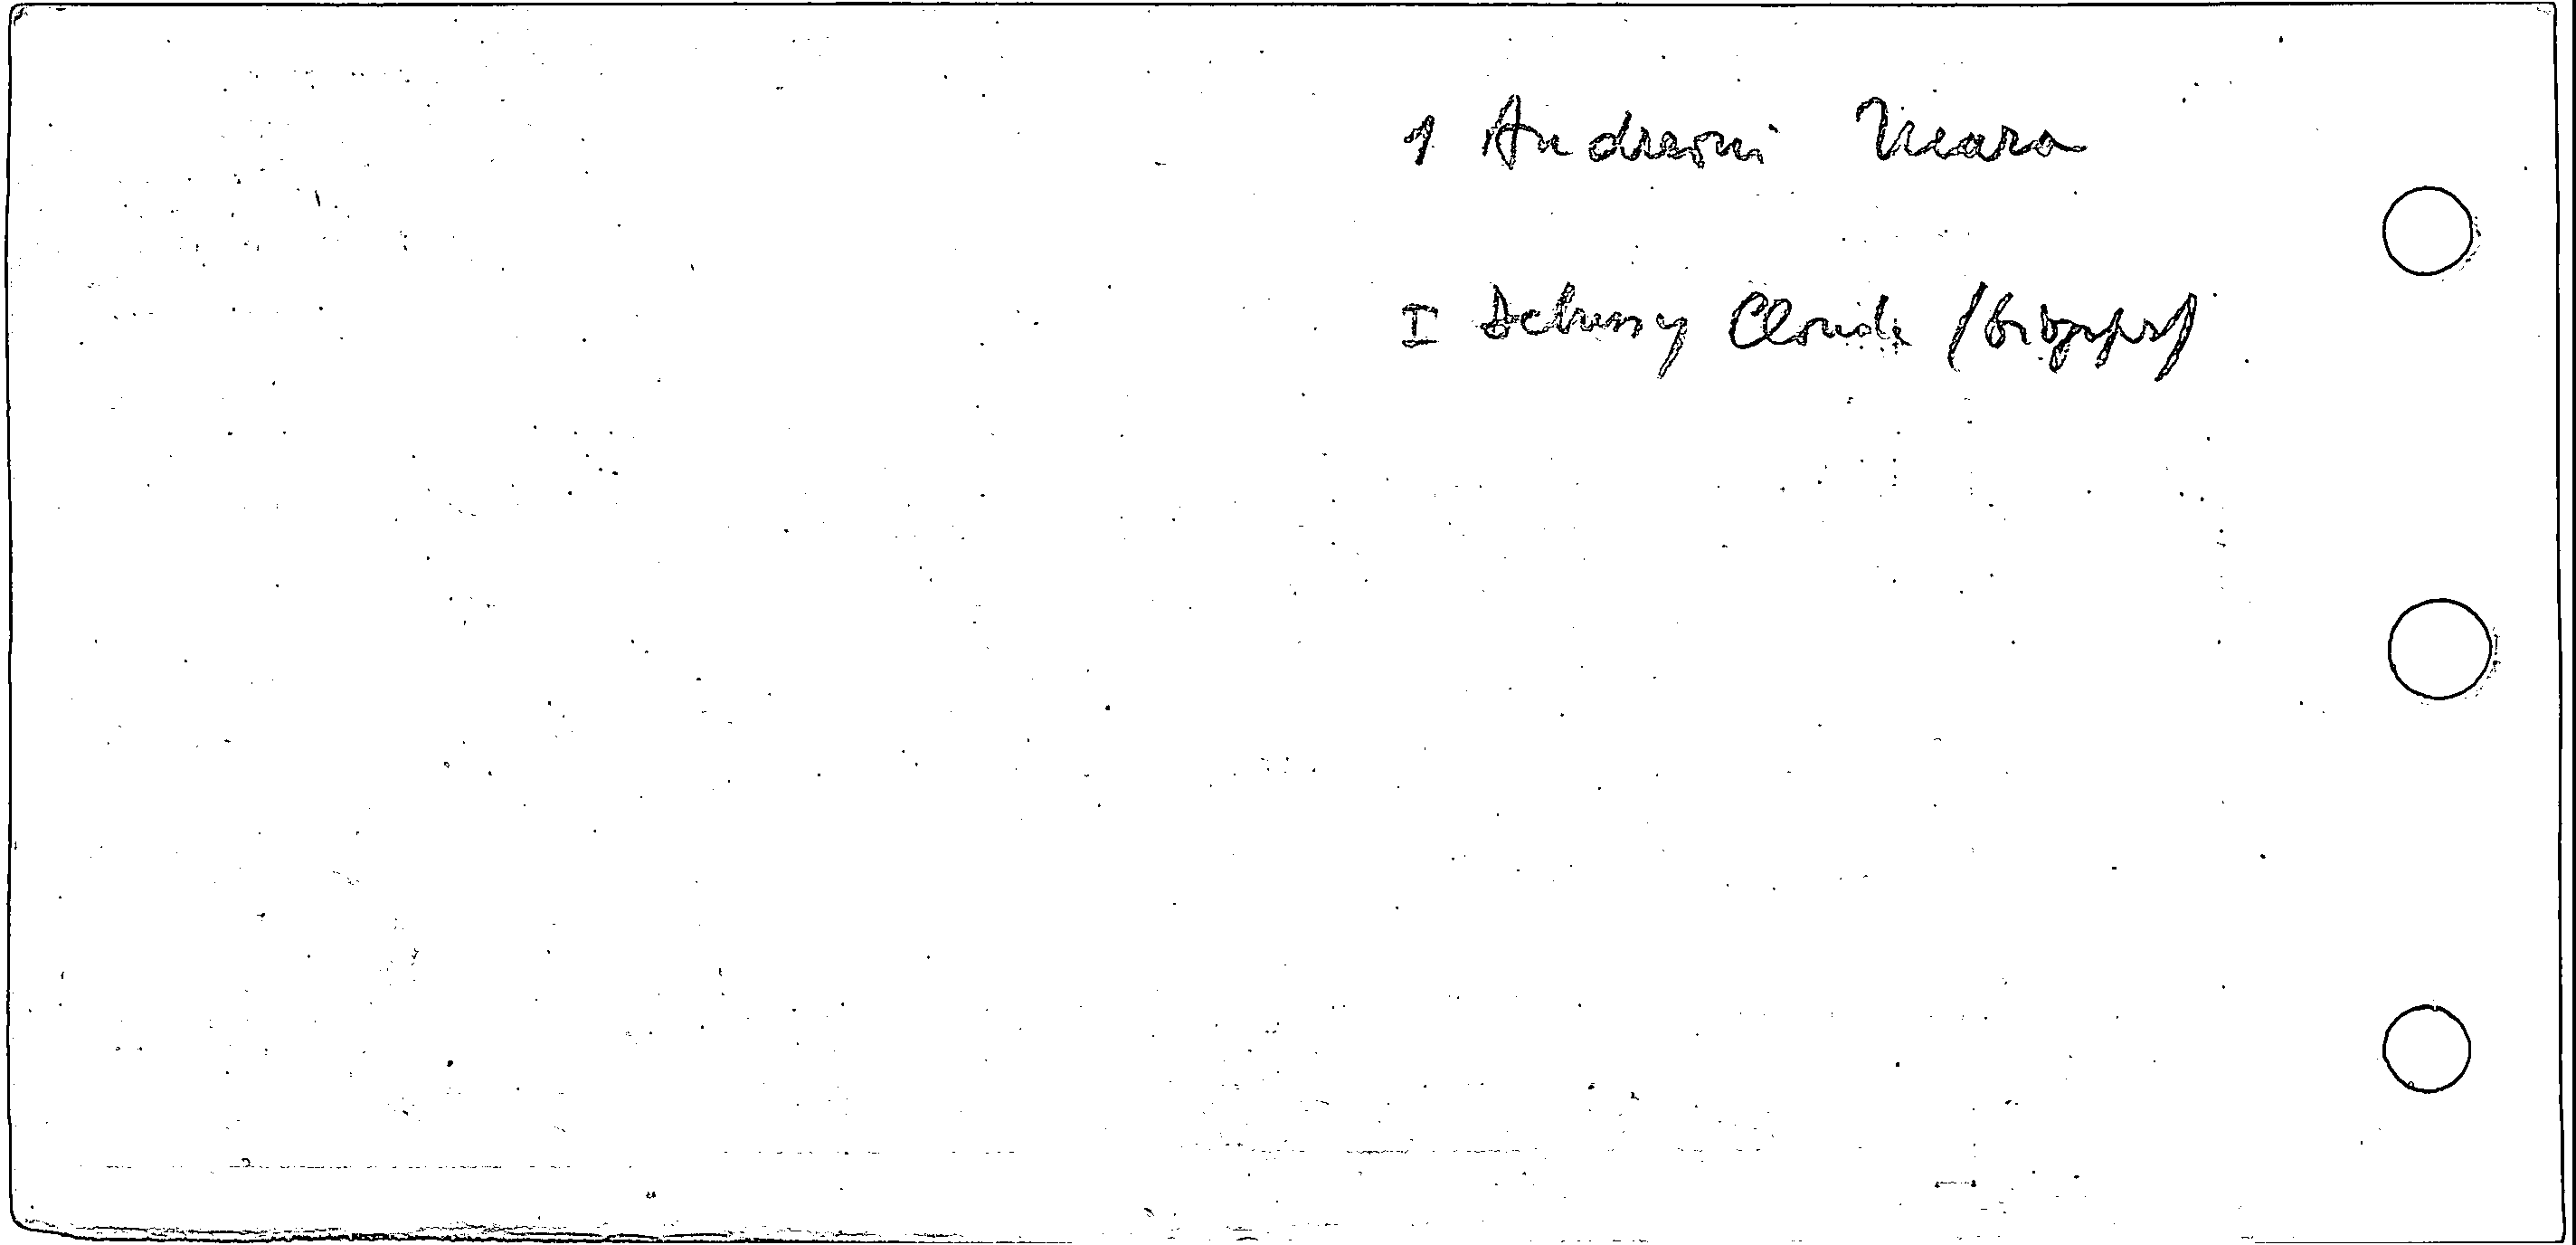 1 Andreoni Mara
I Debussy Claude /biogr/